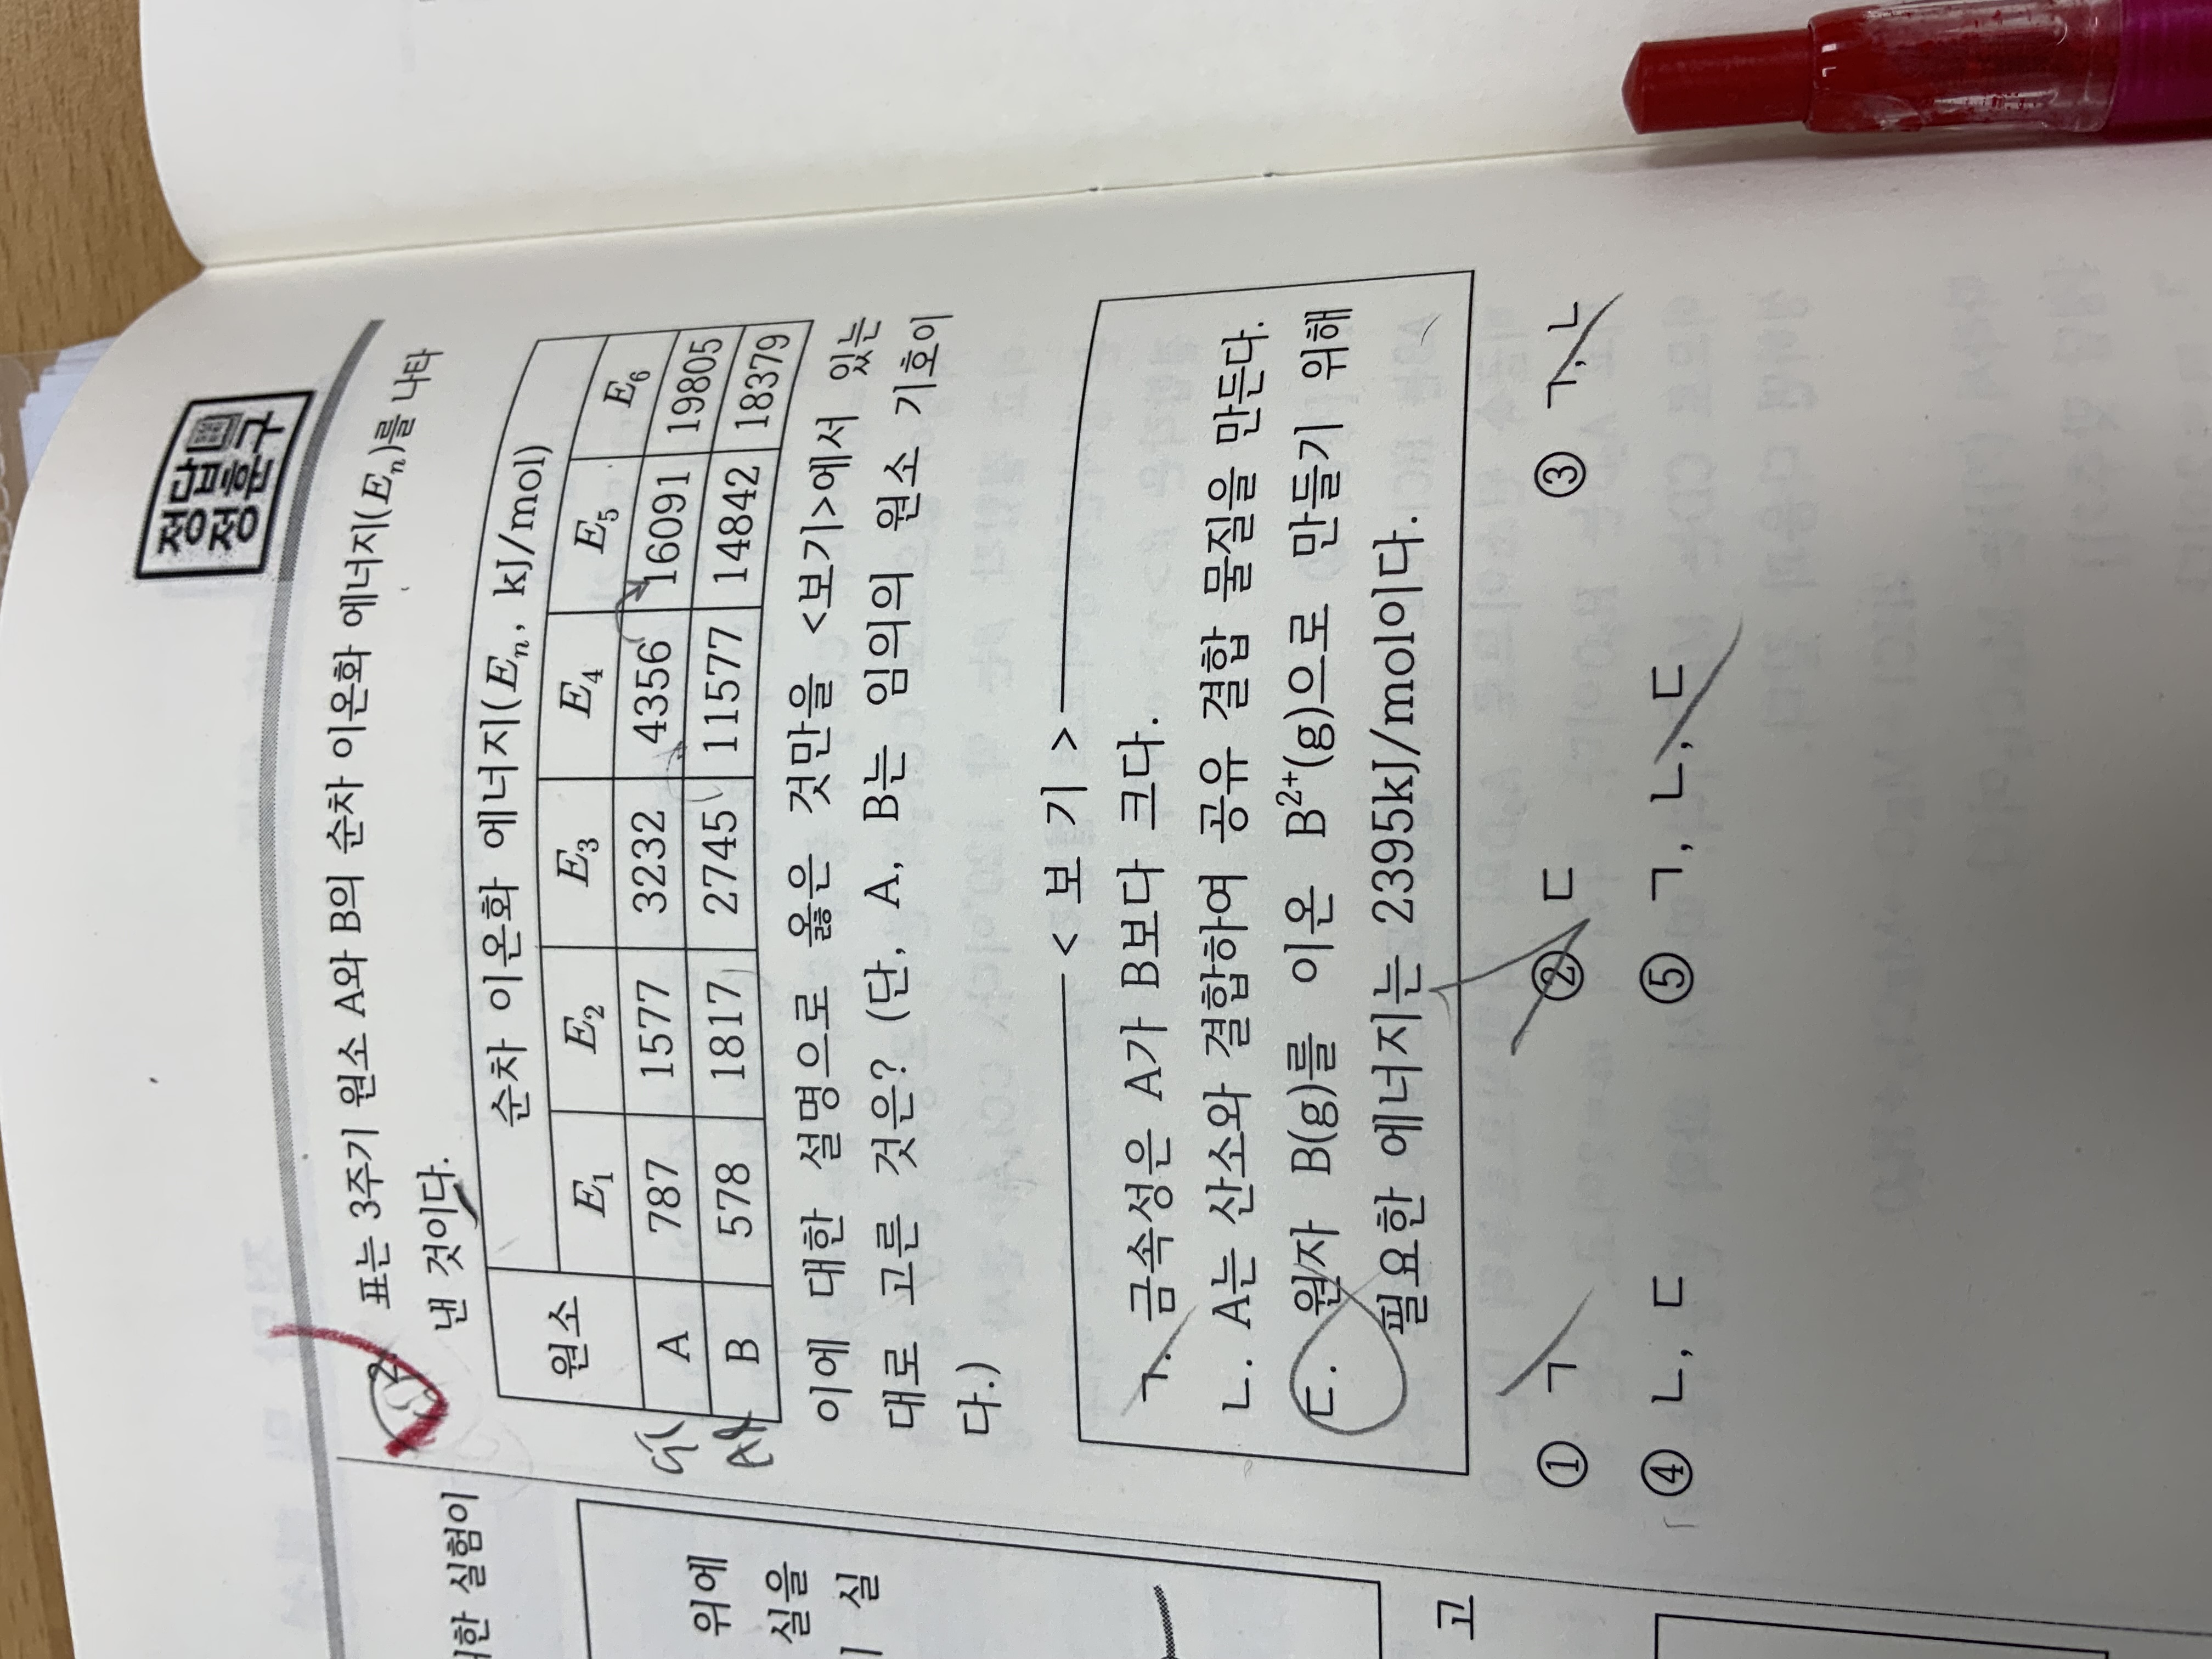 정답
정훈구
2 표는 3주기 원소 A와 B의 순차 이온화 에너지(Eₙ)를 나타
낸 것이다.
원소 순차 이온화 에너지(Eₙ, kJ/mol)
E₁ E₂ E₃ E₄ E₅ E₆
Si A 787 1577 3232 4356 16091 19805
Al B 578 1817 2745 11577 14842 18379
이에 대한 설명으로 옳은 것만을 <보기>에서 있는
대로 고른 것은? (단, A, B는 임의의 원소 기호이
다.)
< 보 기 >
ㄱ. 금속성은 A가 B보다 크다.
ㄴ. A는 산소와 결합하여 공유 결합 물질을 만든다.
ㄷ. 원자 B(g)를 이온 B²⁺(g)으로 만들기 위해
필요한 에너지는 2395kJ/mol이다.
① ㄱ ② ㄷ ③ ㄱ, ㄴ
④ ㄴ, ㄷ ⑤ ㄱ, ㄴ, ㄷ
한 실험이
위에
실을
실
고